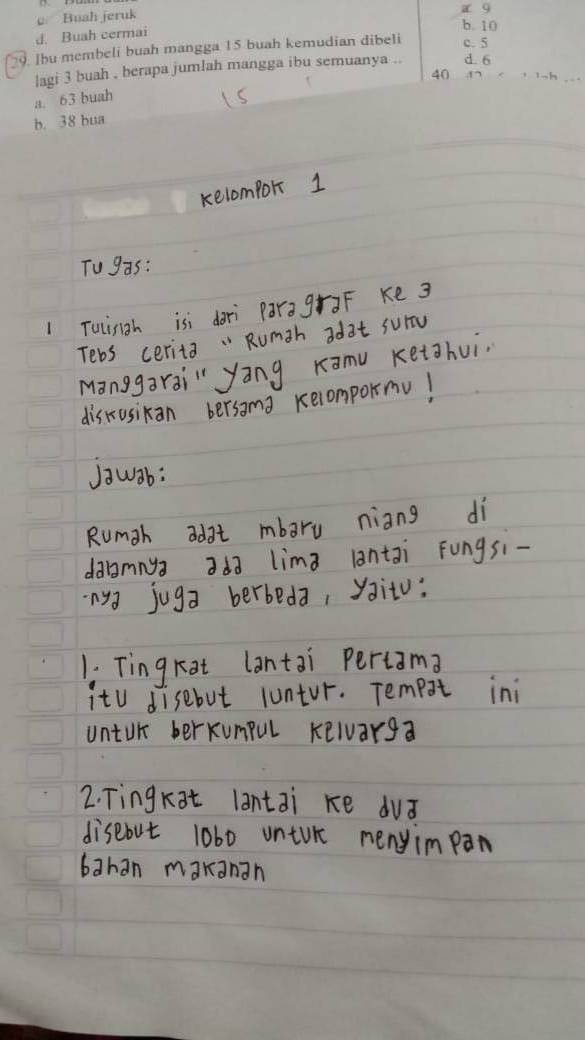 c. Buah jeruk
d. Buah cermai
29. Ibu membeli buah mangga 15 buah kemudian dibeli
lagi 3 buah , berapa jumlah mangga ibu semuanya ..
a. 63 buah
b. 38 bua
15
a. 9
b. 10
c. 5
d. 6
40
Kelompok 1
Tugas:
1 Tulislah isi dari paragraf ke 3
Tebs cerita "Rumah adat suku
Manggarai" yang kamu ketahui.
diskusikan bersama kelompokmu!
Jawab:
Rumah adat mbaru niang di
dalamnya ada lima lantai Fungsi-
-nya juga berbeda, yaitu:
1. Tingkat lantai Pertama
itu disebut luntur. Tempat ini
untuk berkumpul keluarga
2. Tingkat lantai ke dua
disebut lobo untuk menyimpan
bahan makanan